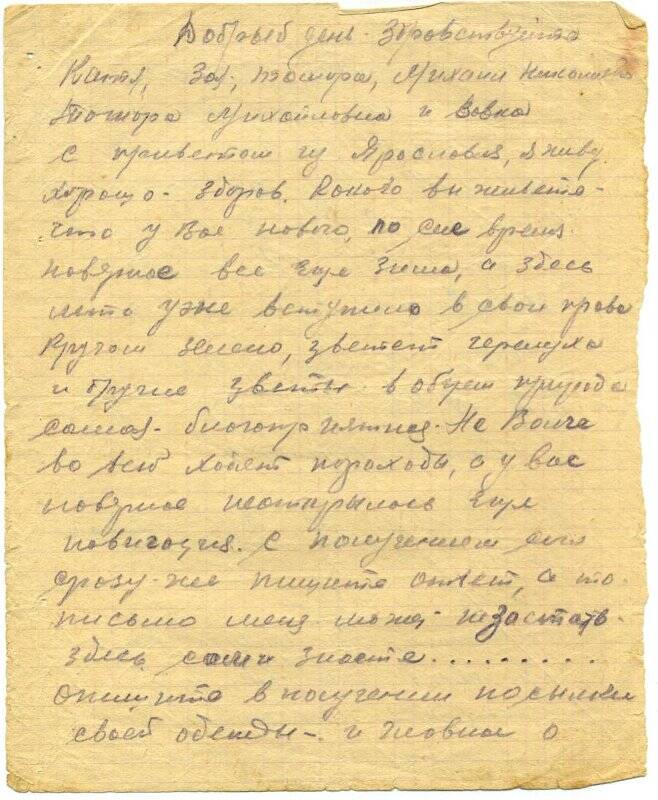 Добрый день. Здравствуйте
Катя, Зоя, Тамара, Михаил Николаев
Тамара Михайловна и Вовка
с приветом из Ярославля, я живу
хорошо. Здоров. Каково вы живете
что у Вас нового, по сие время
наверное все еще зима, а здесь
лето уже вступило в свои права
Кругом зелено, зветет черемуха
и другие зветы. в общем природа
самая благоприятная. На Волге
во всю ходят пароходы, а у вас
наверное неоткрылось еще
навигация. С получением
сразу-же пишите ответ, а то
письмо меня может незастать
здесь сами знаете.........
опишите в получении посылки
своей одежды. и главное о